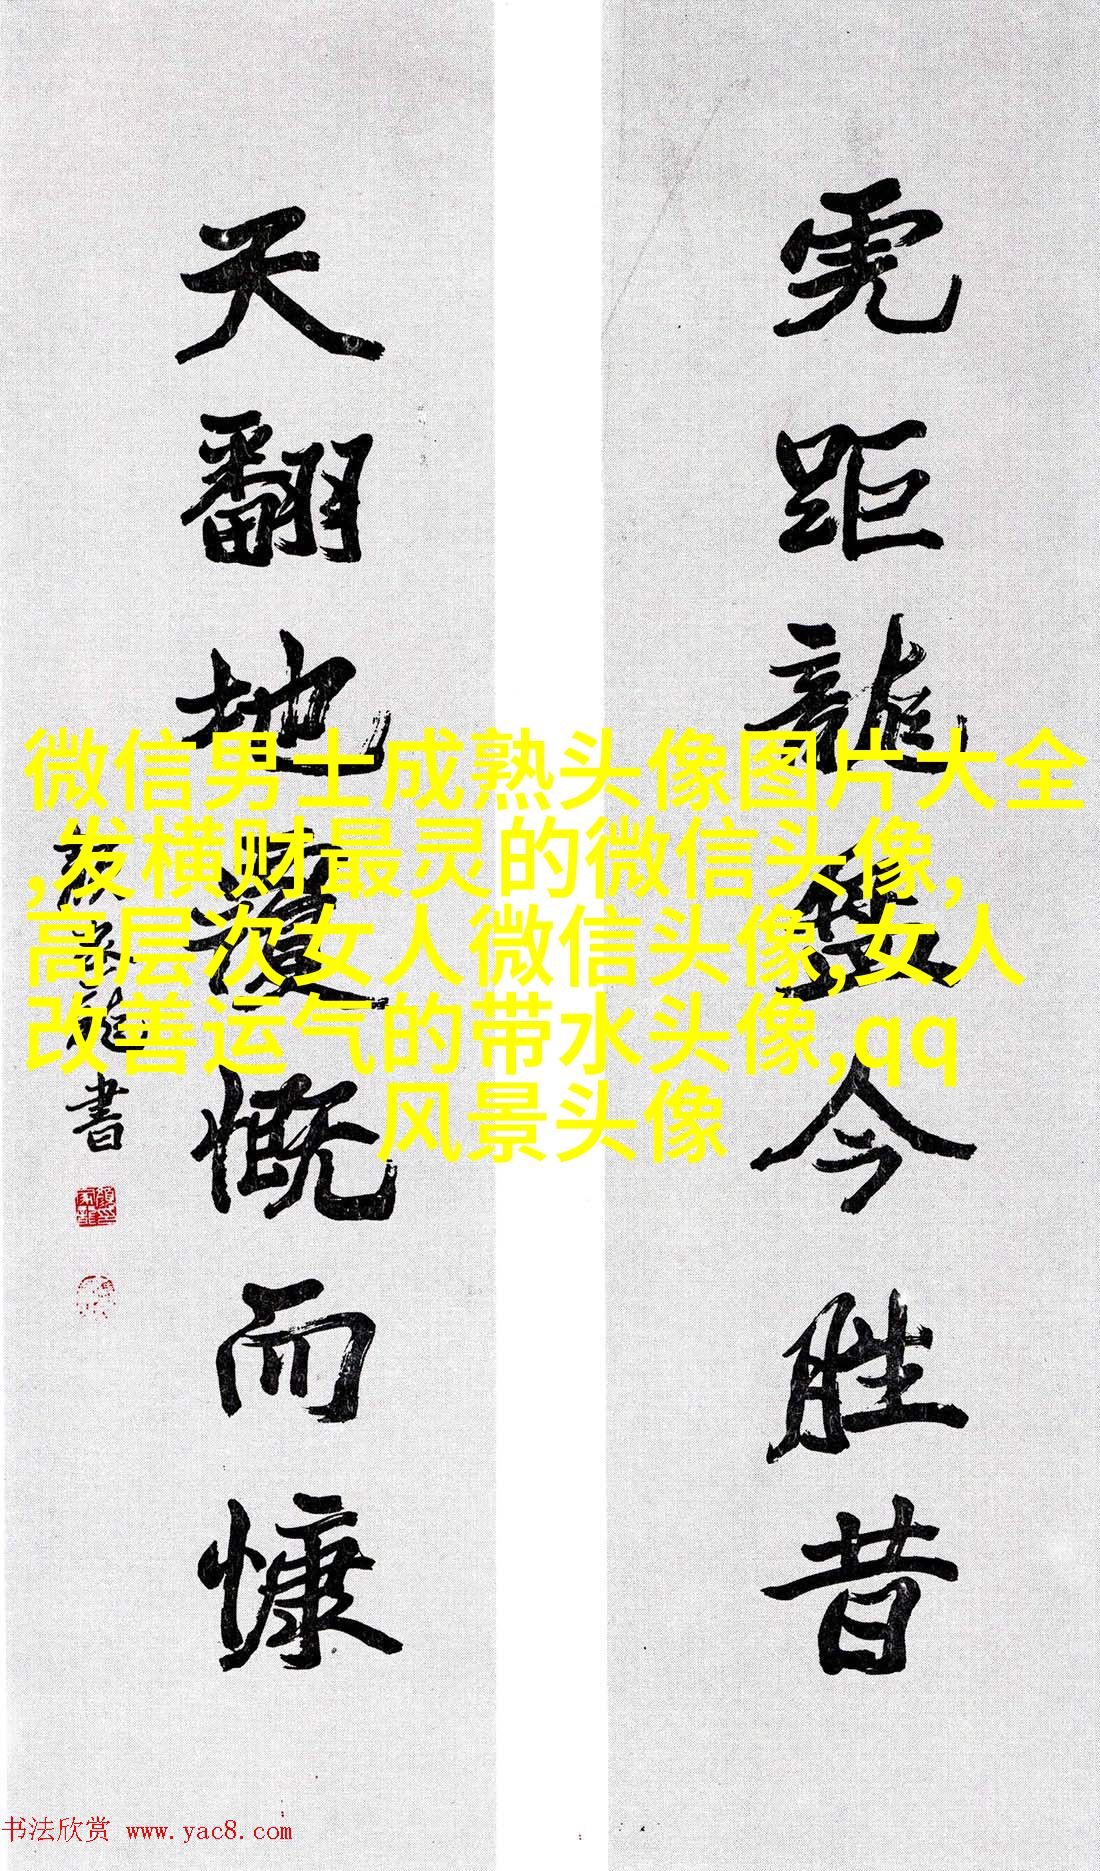 虎距龍盤今胜昔
天翻地覆慨而慷
家龍書
微信男士成熟头像图片大全
,发横财最灵的微信头像,
高层次女人微信头像,女人
改善运气的带水头像,qq
风景头像
书法欣赏 www.yac8.com